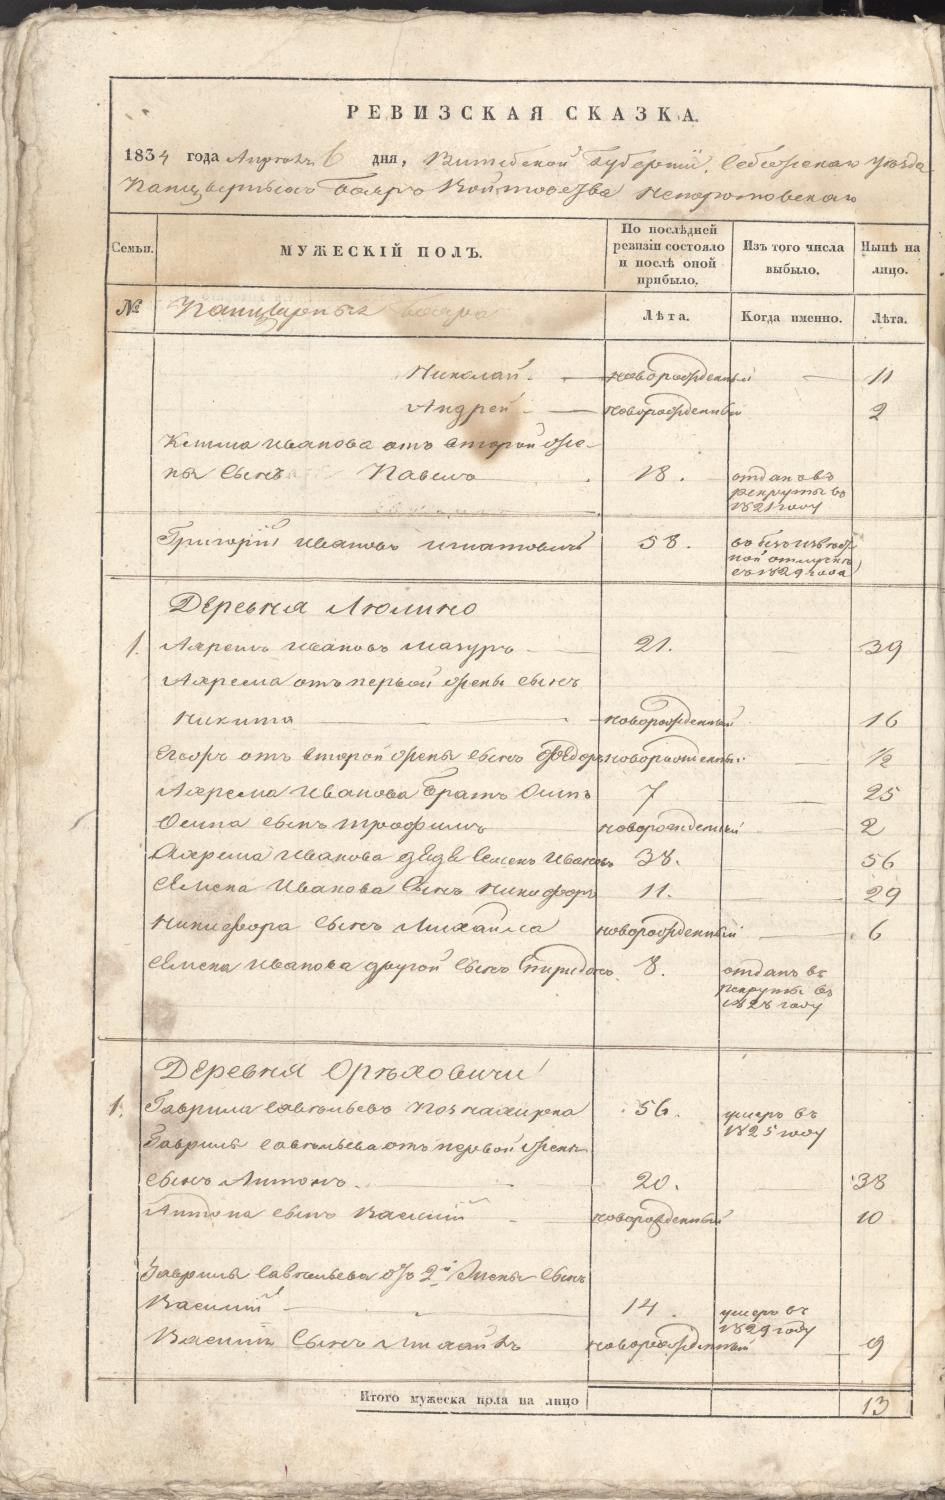 РЕВИЗСКАЯ СКАЗКА.
1834 года Апреля 6 дня, Витебской Губернии, Себежскаго Уезда
Панцырныхъ Бояръ Войтовства
Семьи.
МУЖЕСКІЙ ПОЛЪ.
По послѣдней ревизіи состояло и послѣ оной прибыло.
Изъ того числа выбыло.
Нынѣ на лицо.
№
Панцырныхъ бояръ
Лѣта.
Когда именно.
Лѣта.
Николай новорожденный 11
Андрей новорожденный 2
Иванова отъ второй же-
ны сынъ Павелъ 18. отданъ въ рекруты въ 1821 году
Григорій Ивановъ Игнатовичъ 58. въ безъизвѣстной отлучкѣ съ 1829 года
Деревня Люлино
1. Ахремъ Ивановъ Мазуръ 21. 39
Ахрема отъ первой жены сынъ
Никита новорожденный 16
отъ второй жены сынъ Федоръ новорожденный 1/2
Ахрема Иванова братъ Осипъ 7 25
Осипа сынъ Трофимъ новорожденный 2
Ахрема Иванова дядя Семенъ Ивановъ 38. 56
Семена Иванова сынъ Никифоръ 11. 29
Никифора сынъ Михайла новорожденный 6
Семена Иванова другой сынъ Спиридонъ 8. отданъ въ рекруты въ 1828 году
Деревня Орѣховичи
1. Гаврила Савельевъ 56. умеръ въ 1825 году
Гаврилы Савельева отъ первой жены
сынъ Антонъ. 20. 38
Антона сынъ Василій новорожденный 10
Гаврилы Савельева отъ 2й жены сынъ
Василій 14. умеръ въ 1829 году
Василія сынъ новорожденный 9
Итого мужеска пола на лицо 13